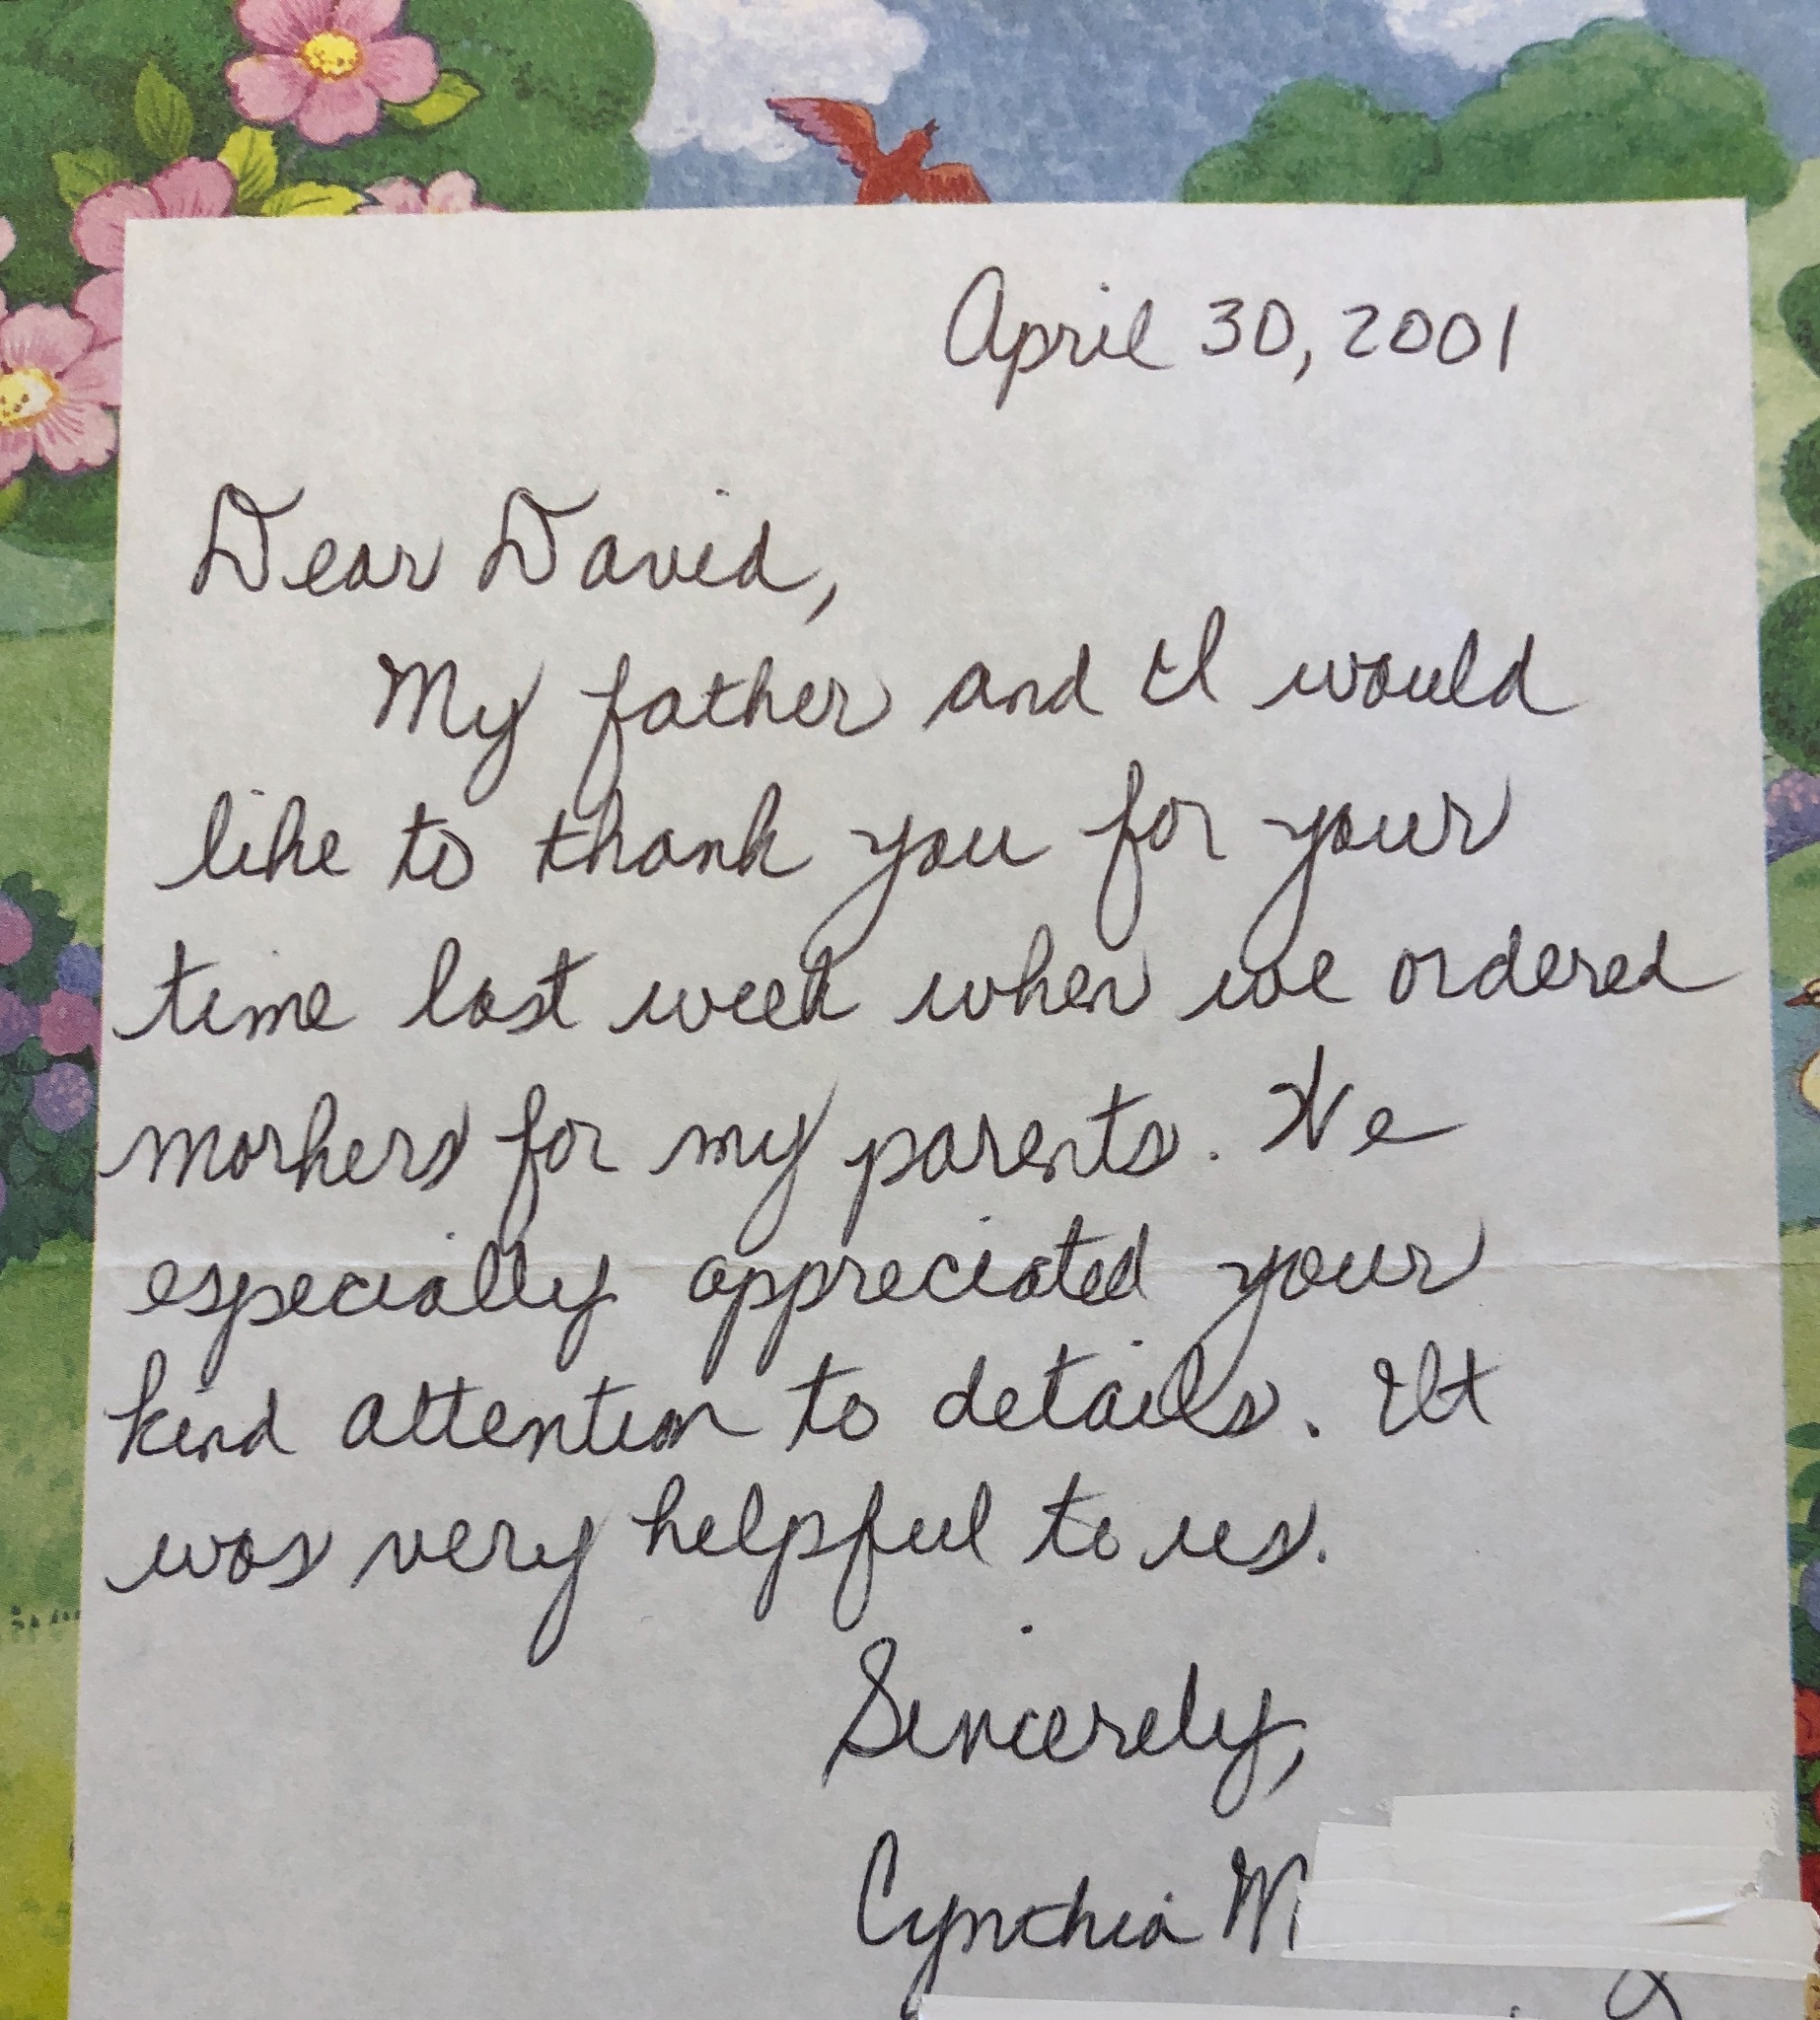 April 30, 2001
Dear David,
My father and I would
like to thank you for your
time last week when we ordered
markers for my parents. We
especially appreciated your
kind attention to details. It
was very helpful to us.
Sincerely,
Cynthia